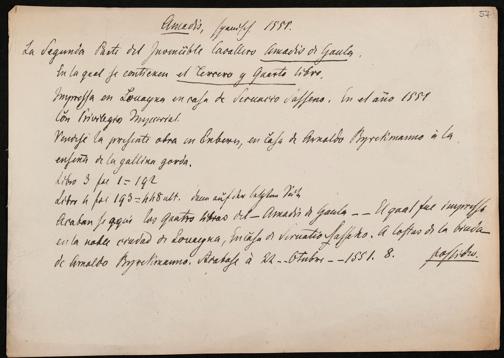 57
Amadis, spanisch 1551.
La Segunda Parte del Invencible Cavallero Amadis de Gaula.
En la qual se contienen el Tercero y Quarto libro.
Impressa en Louayna en casa de Servacio Sasseno. En el año 1551
Con Privilegio Imperial.
Vendese la presente obra en Enberes, en casa de Arnaldo Byrckmanno à la
enseña de la gallina gorda.
Libro 3 fol 1 = 192
Libro 4 fol 193 = 448 ult. dann auf der letzten Seite
Acaban se aqui los quatro libros del - Amadis de Gaula -- El qual fue impresso
en la noble ciudad de Louayna, En casa de Servatio Sasseno. A costas de la biuda
de Arnaldo Byrckmanno. Acabose à 22 -- Otubre -- 1551. 8.